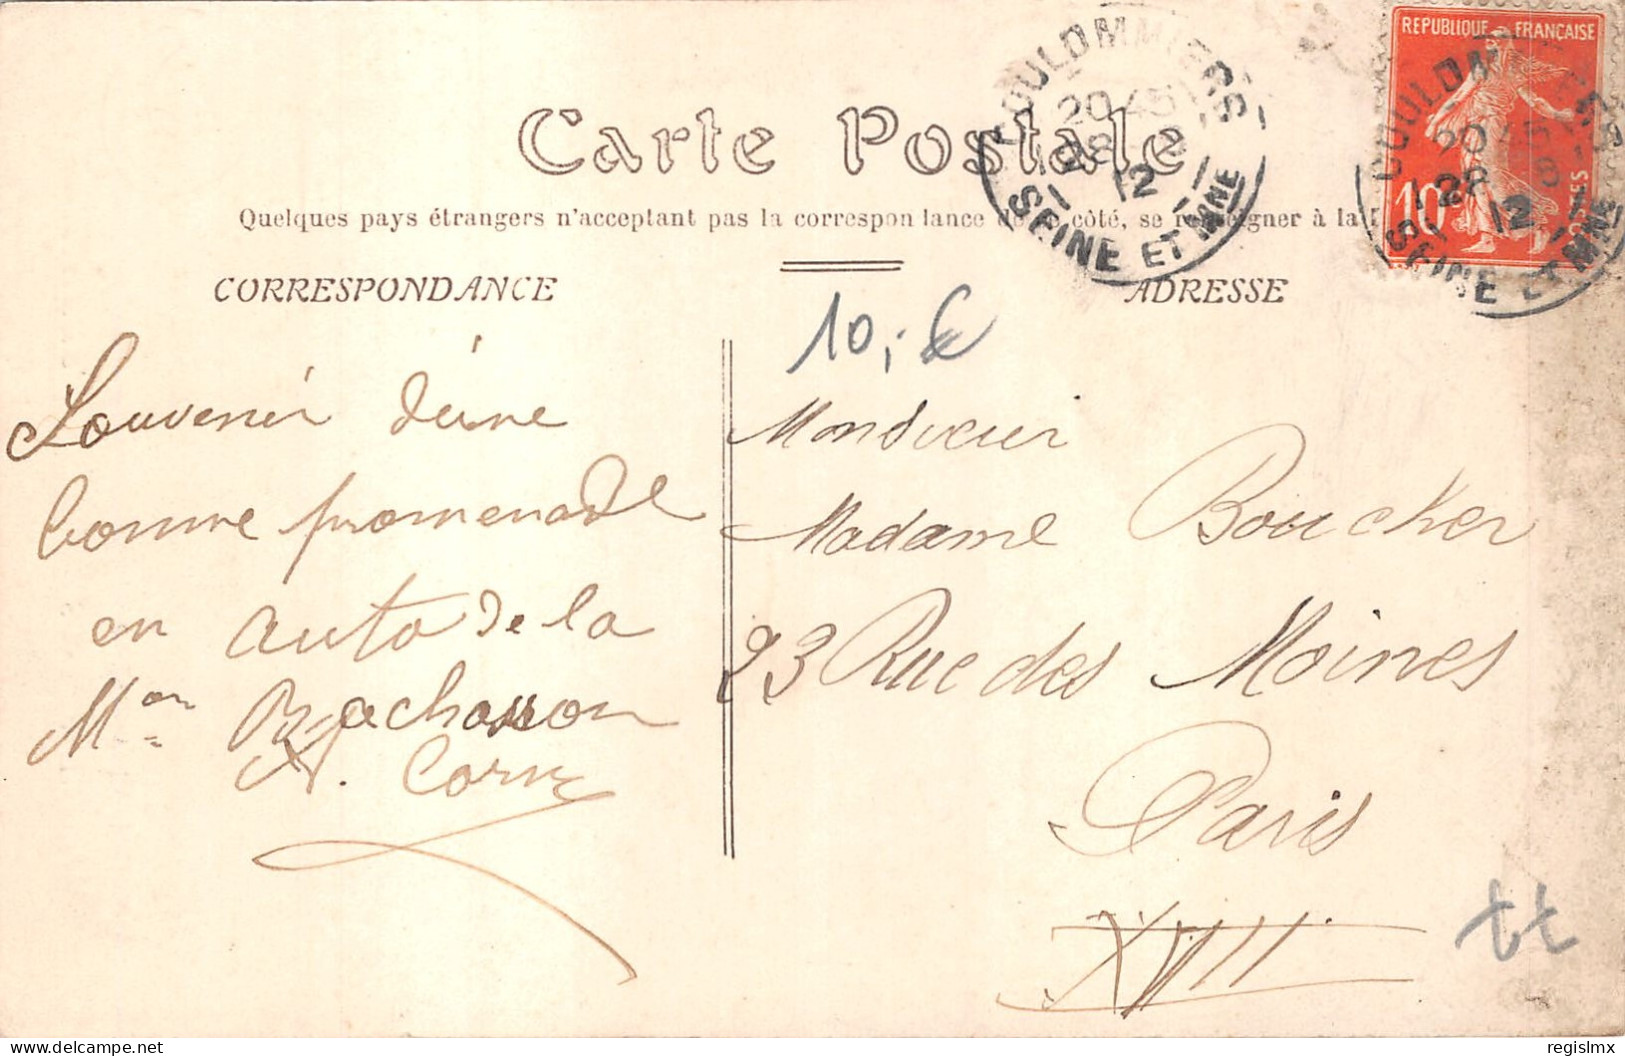 Carte Postale
Quelques pays étrangers n'acceptent pas la correspondance de ce côté, se renseigner à la
CORRESPONDANCE
ADRESSE
REPUBLIQUE FRANÇAISE
10c
POSTES
COULOMMIERS
20 45
28 - 8
12
SEINE ET MNE
COULOMMIERS
20 45
28 - 8
12
SEINE ET MNE
10,-€
Souvenir d'une
bonne promenade
en auto de la
Mon Bachasson
Monsieur
Madame Boucher
23 Rue des Moines
Paris
XVII
tt
delcampe.net
regislmx